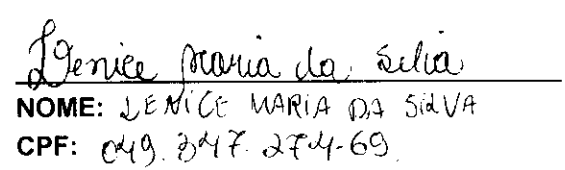 Lenice Maria da Silva
NOME: LENICE MARIA DA SILVA
CPF: 049.347.274-69